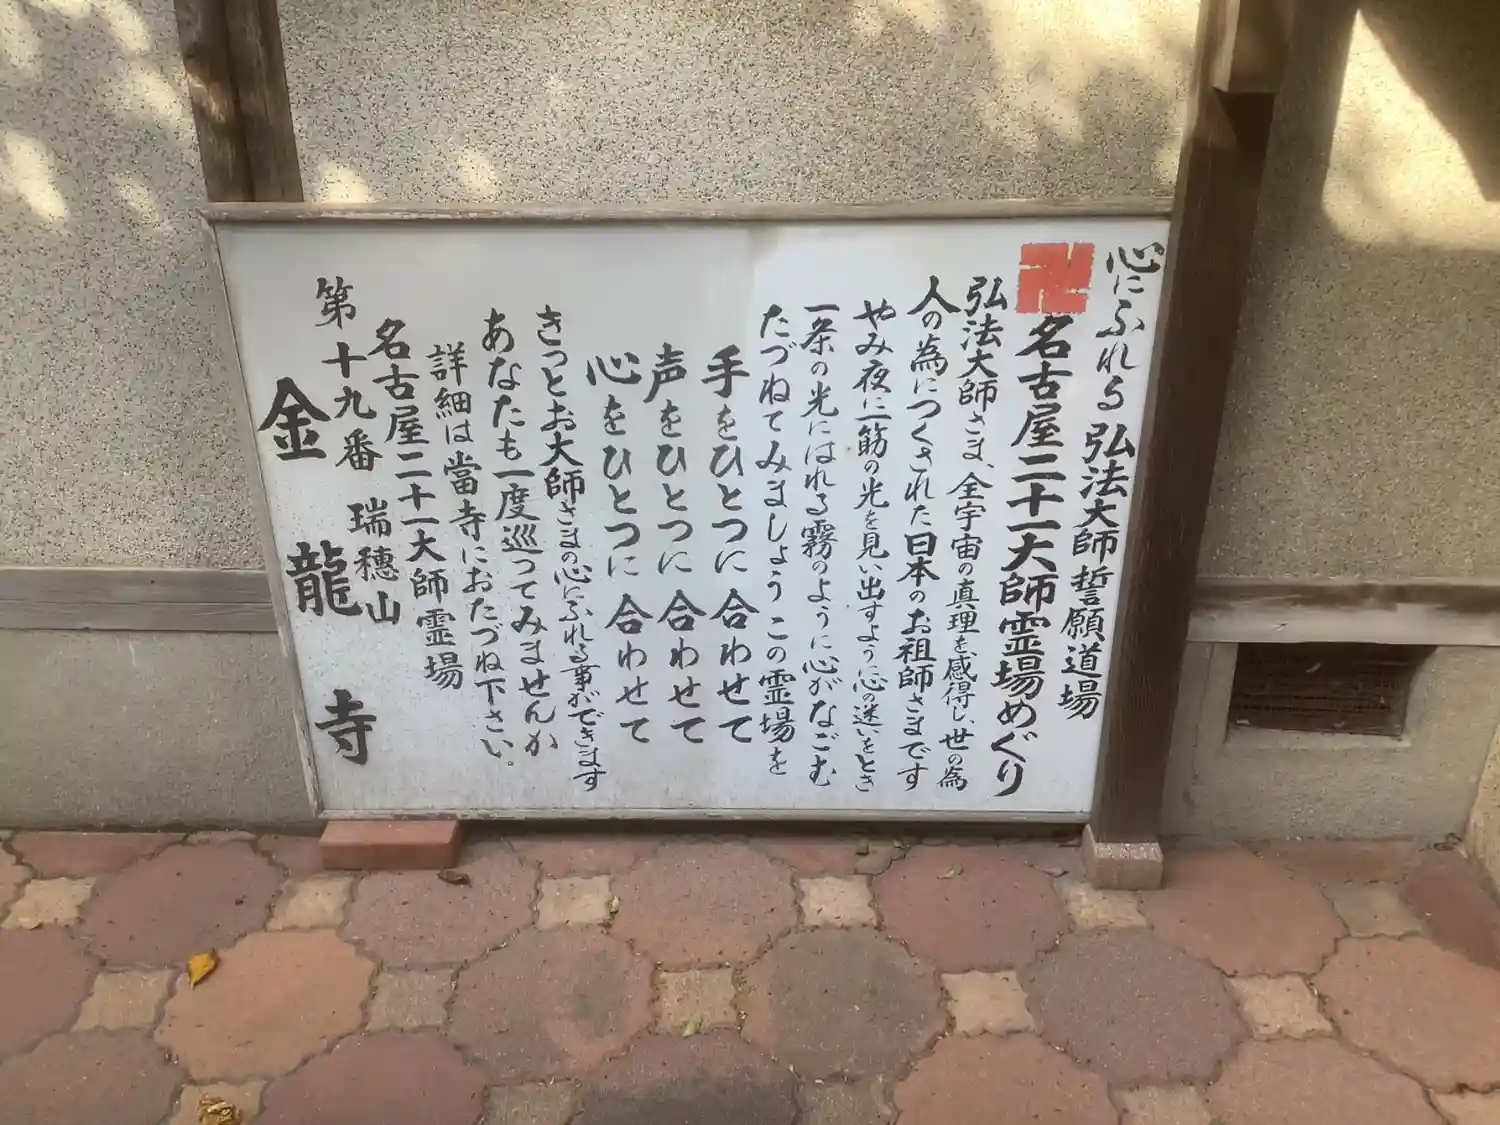 心にふれる 弘法大師 誓願道場
卍 名古屋二十一大師霊場めぐり
弘法大師さま、全宇宙の真理を感得し、世の為
人の為につくされた日本のお祖師さまです
やみ夜に一筋の光を見い出すように心の迷いをとき
一条の光にはれる霧のように心がなごむ
たづねてみましょうこの霊場を
手をひとつに合わせて
声をひとつに合わせて
心をひとつに合わせて
きっとお大師さまの心にふれる事ができます
あなたも一度巡ってみませんか
詳細は當寺におたづね下さい。
名古屋二十一大師霊場
第十九番 瑞穂山
金龍寺